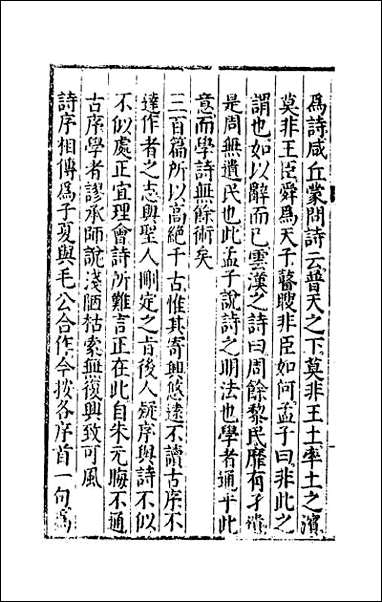 爲詩咸丘蒙問詩云普天之下莫非王土率土之濵
莫非王臣舜爲天子瞽瞍非臣如何孟子曰非此之
謂也如以辭而已雲漢之詩曰周餘黎民靡有孑遺
是周無遺民也此孟子說詩之明法也學者通乎此
意而學詩無餘術矣
三百篇所以高絕千古惟其寄興悠遠不讀古序不
達作者之志與聖人刪定之旨後人疑序與詩不似
不似處正宜理會詩所難言正在此自朱元晦不通
古序學者謬承師說淺陋枯索無復興致可風
詩序相傳爲子夏與毛公合作今按各序首一句爲